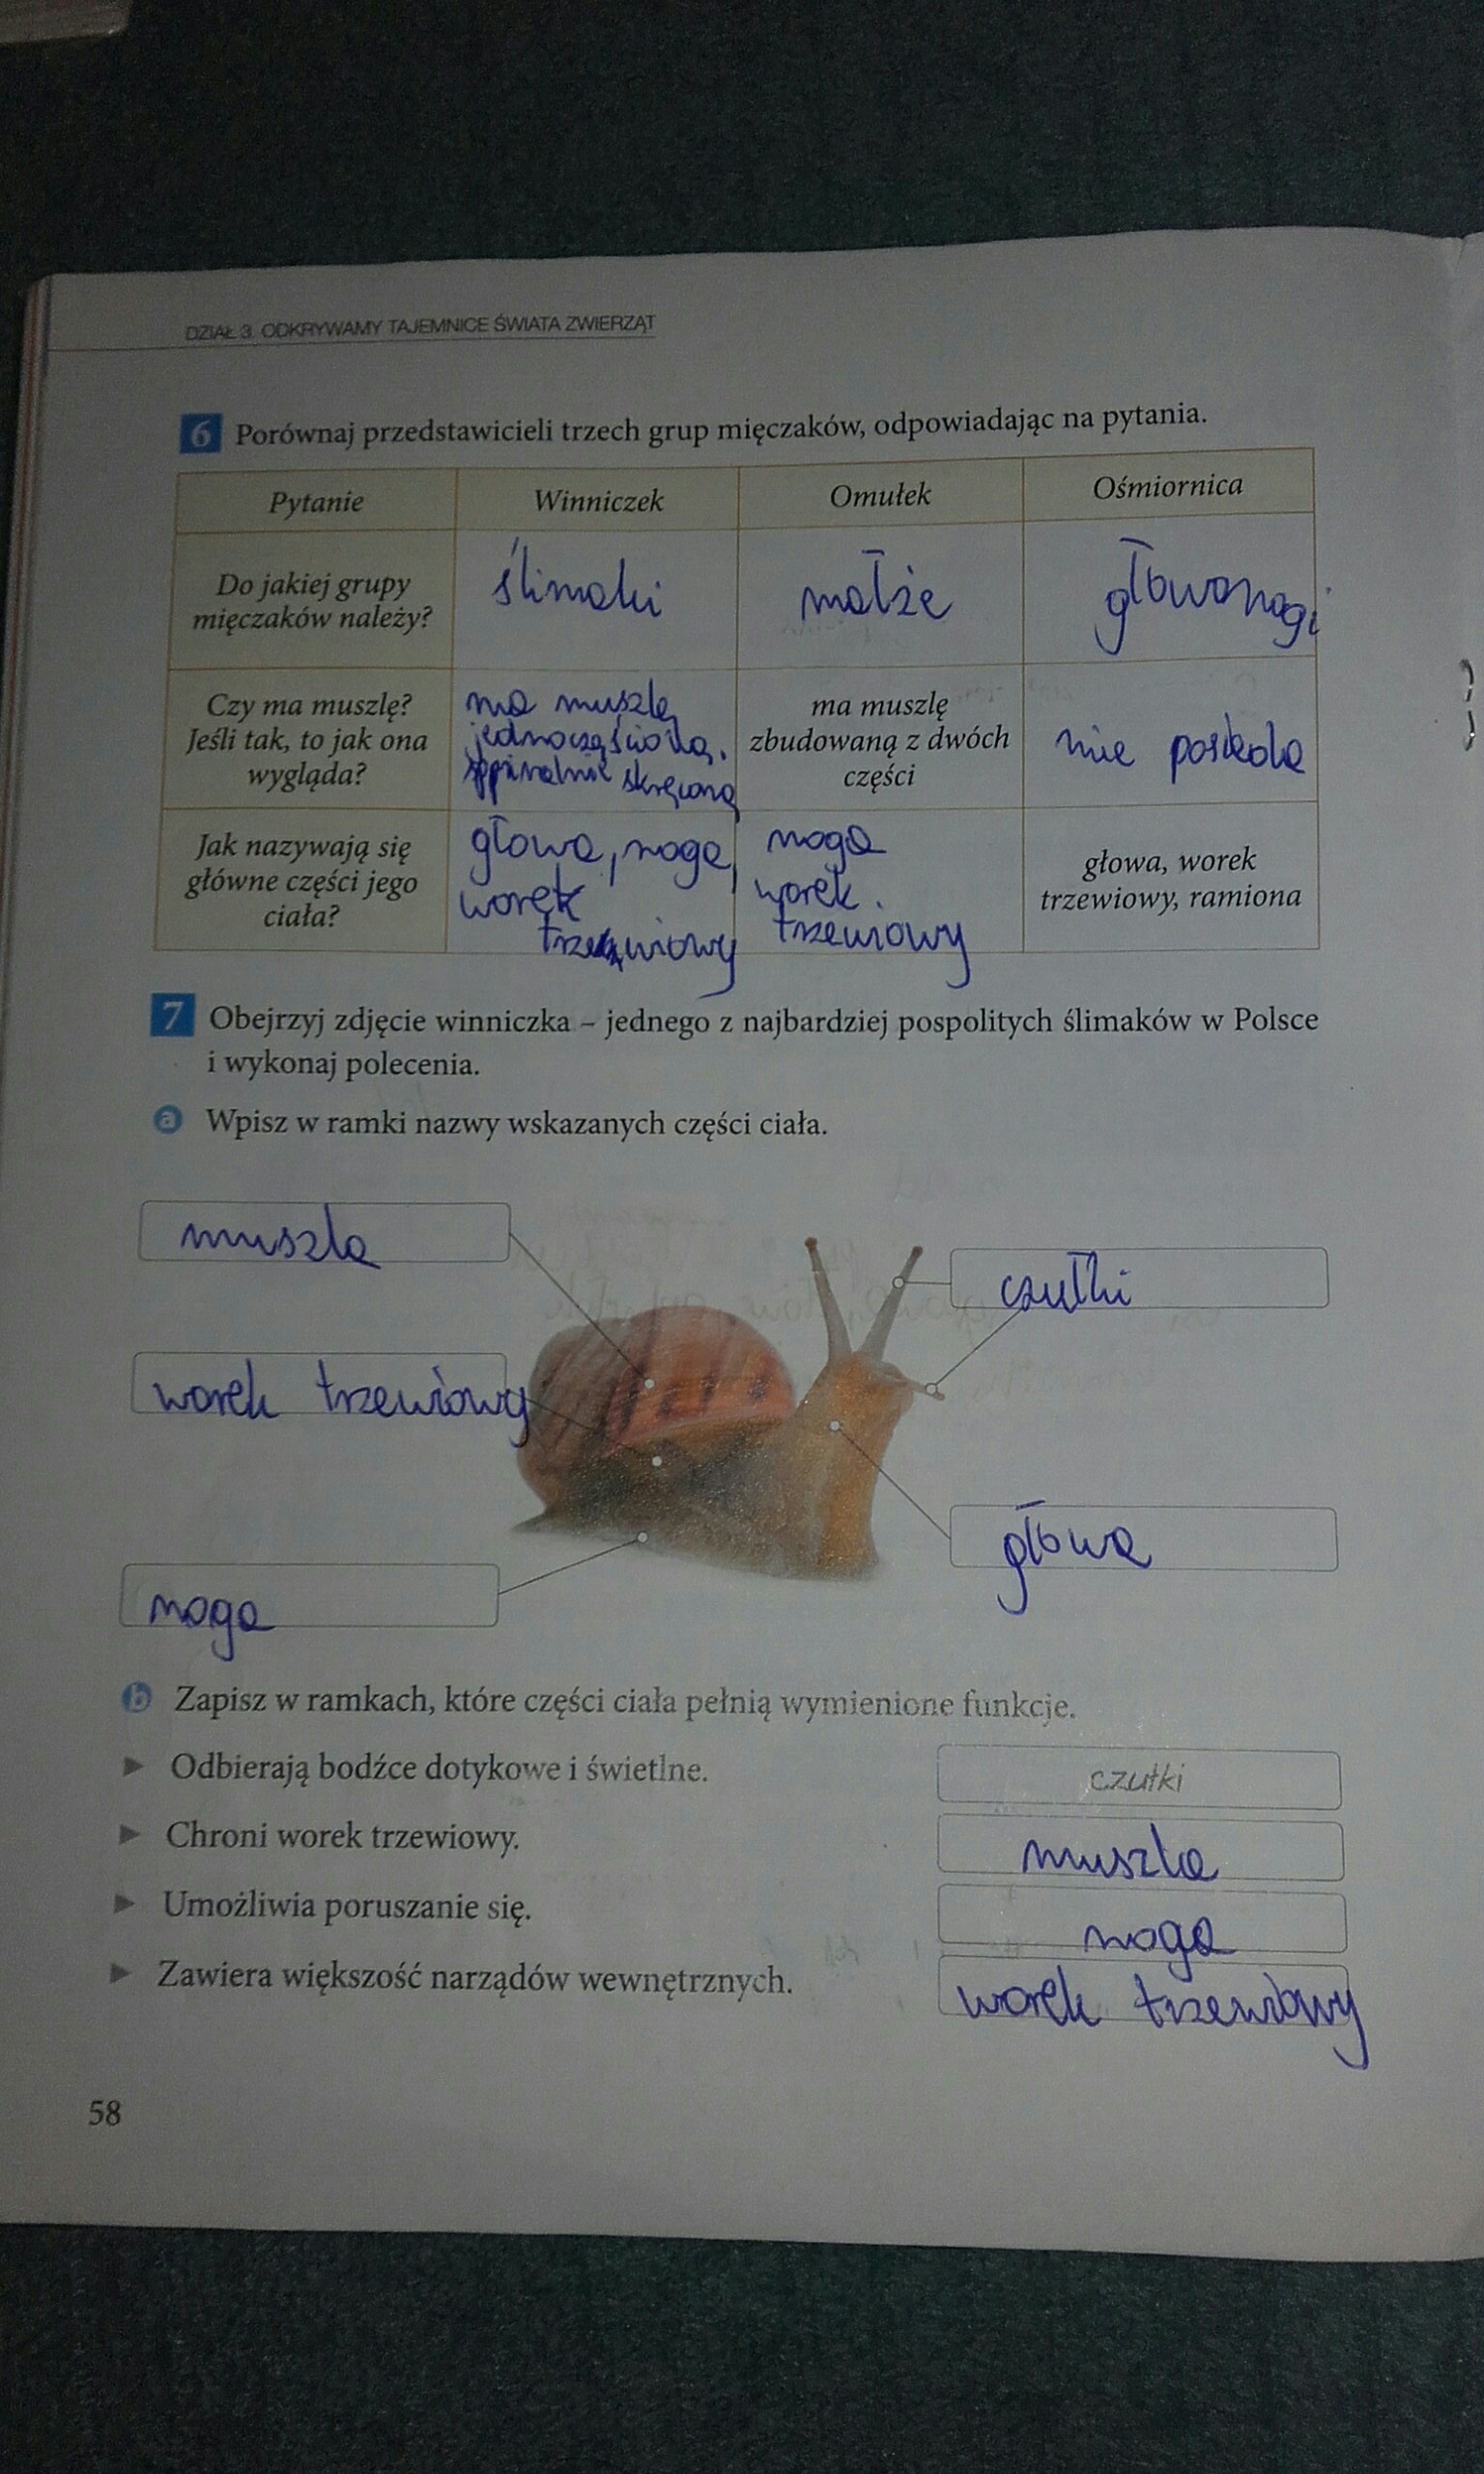 DZIAŁ 3. ODKRYWAMY TAJEMNICE ŚWIATA ZWIERZĄT
6 Porównaj przedstawicieli trzech grup mięczaków, odpowiadając na pytania.
Pytanie Winniczek Omułek Ośmiornica
Do jakiej grupy
mięczaków należy?
ślimaki
małże
głowonogi
Czy ma muszlę?
Jeśli tak, to jak ona
wygląda?
ma muszlę
jednoczęściową.
spiralnie skręconą
ma muszlę
zbudowaną z dwóch
części
nie posiada
Jak nazywają się
główne części jego
ciała?
głowa, noga,
worek
trzewiowy
noga
worek.
trzewiowy
głowa, worek
trzewiowy, ramiona
7 Obejrzyj zdjęcie winniczka – jednego z najbardziej pospolitych ślimaków w Polsce
i wykonaj polecenia.
a Wpisz w ramki nazwy wskazanych części ciała.
muszla
czułki
worek trzewiowy
głowa
noga
b Zapisz w ramkach, które części ciała pełnią wymienione funkcje.
► Odbierają bodźce dotykowe i świetlne. czułki
► Chroni worek trzewiowy. muszla
► Umożliwia poruszanie się. noga
► Zawiera większość narządów wewnętrznych. worek trzewiowy
58